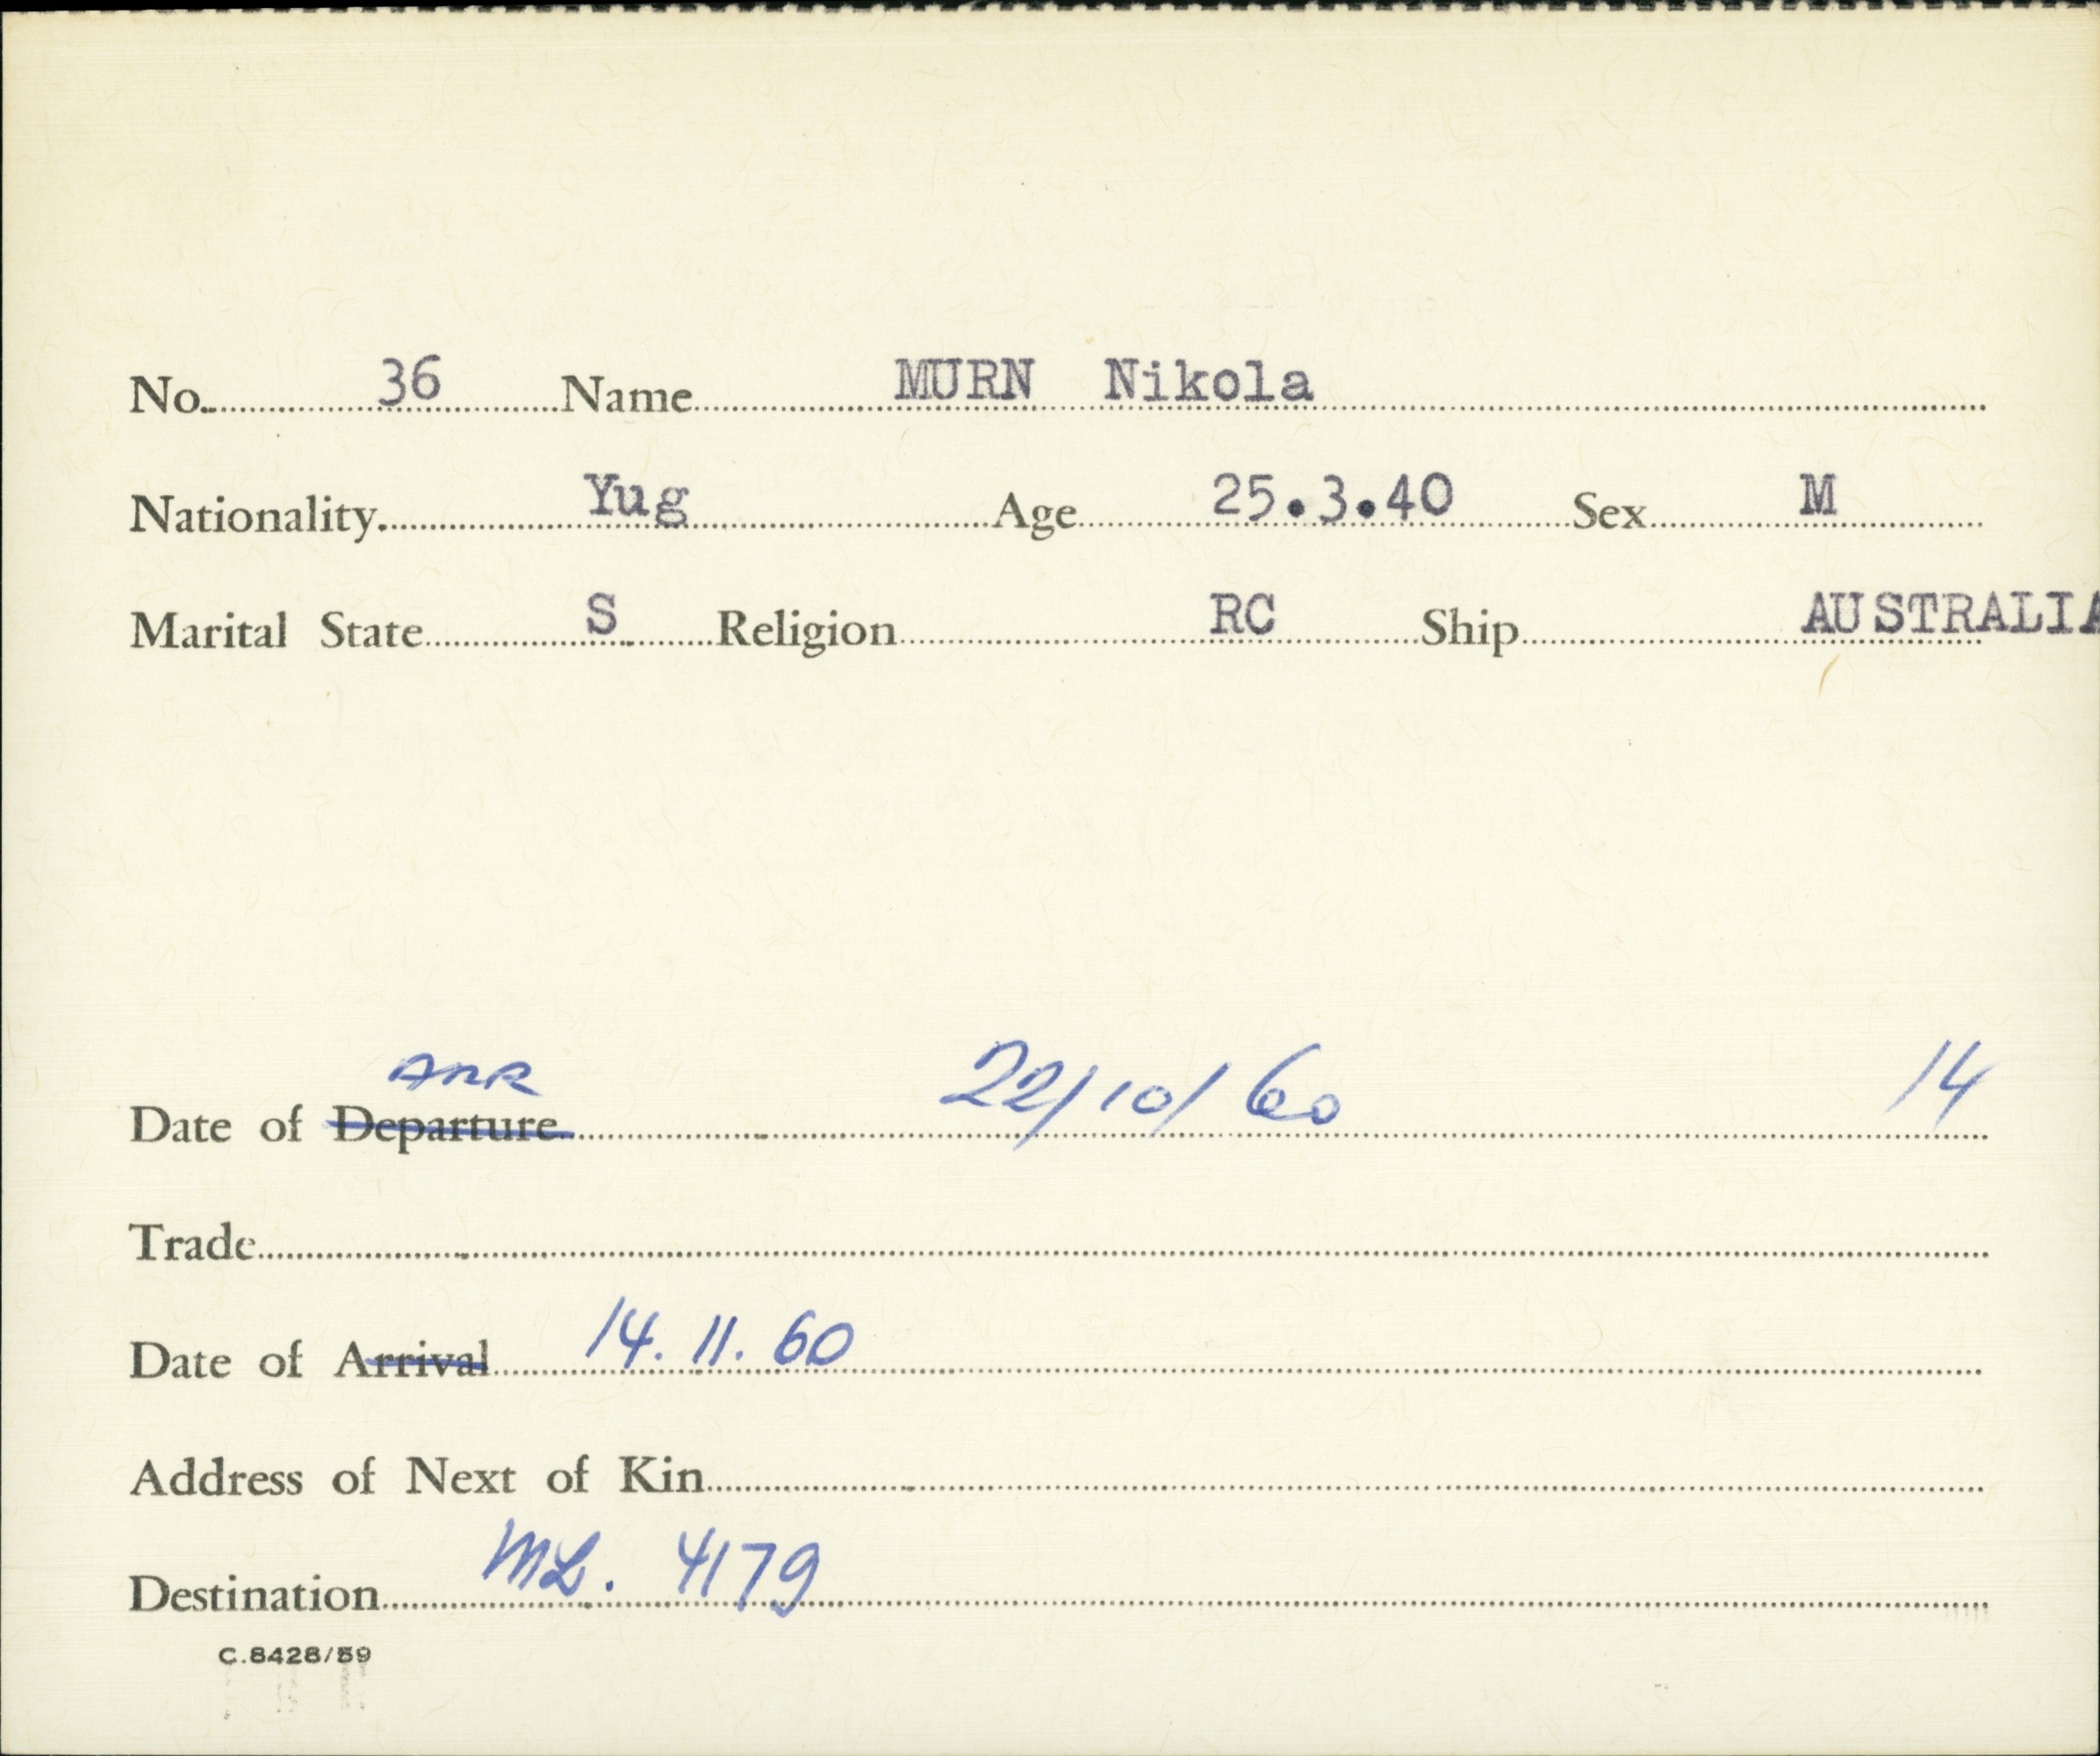 No. 36 Name MURN Nikola
Nationality. Yug Age 25.3.40 Sex M
Marital State S Religion RC Ship AUSTRALIA
ARR
Date of Departure 22/10/60 14
Trade
Date of Arrival 14.11.60
Address of Next of Kin
Destination ML. 4179
C.8428/59